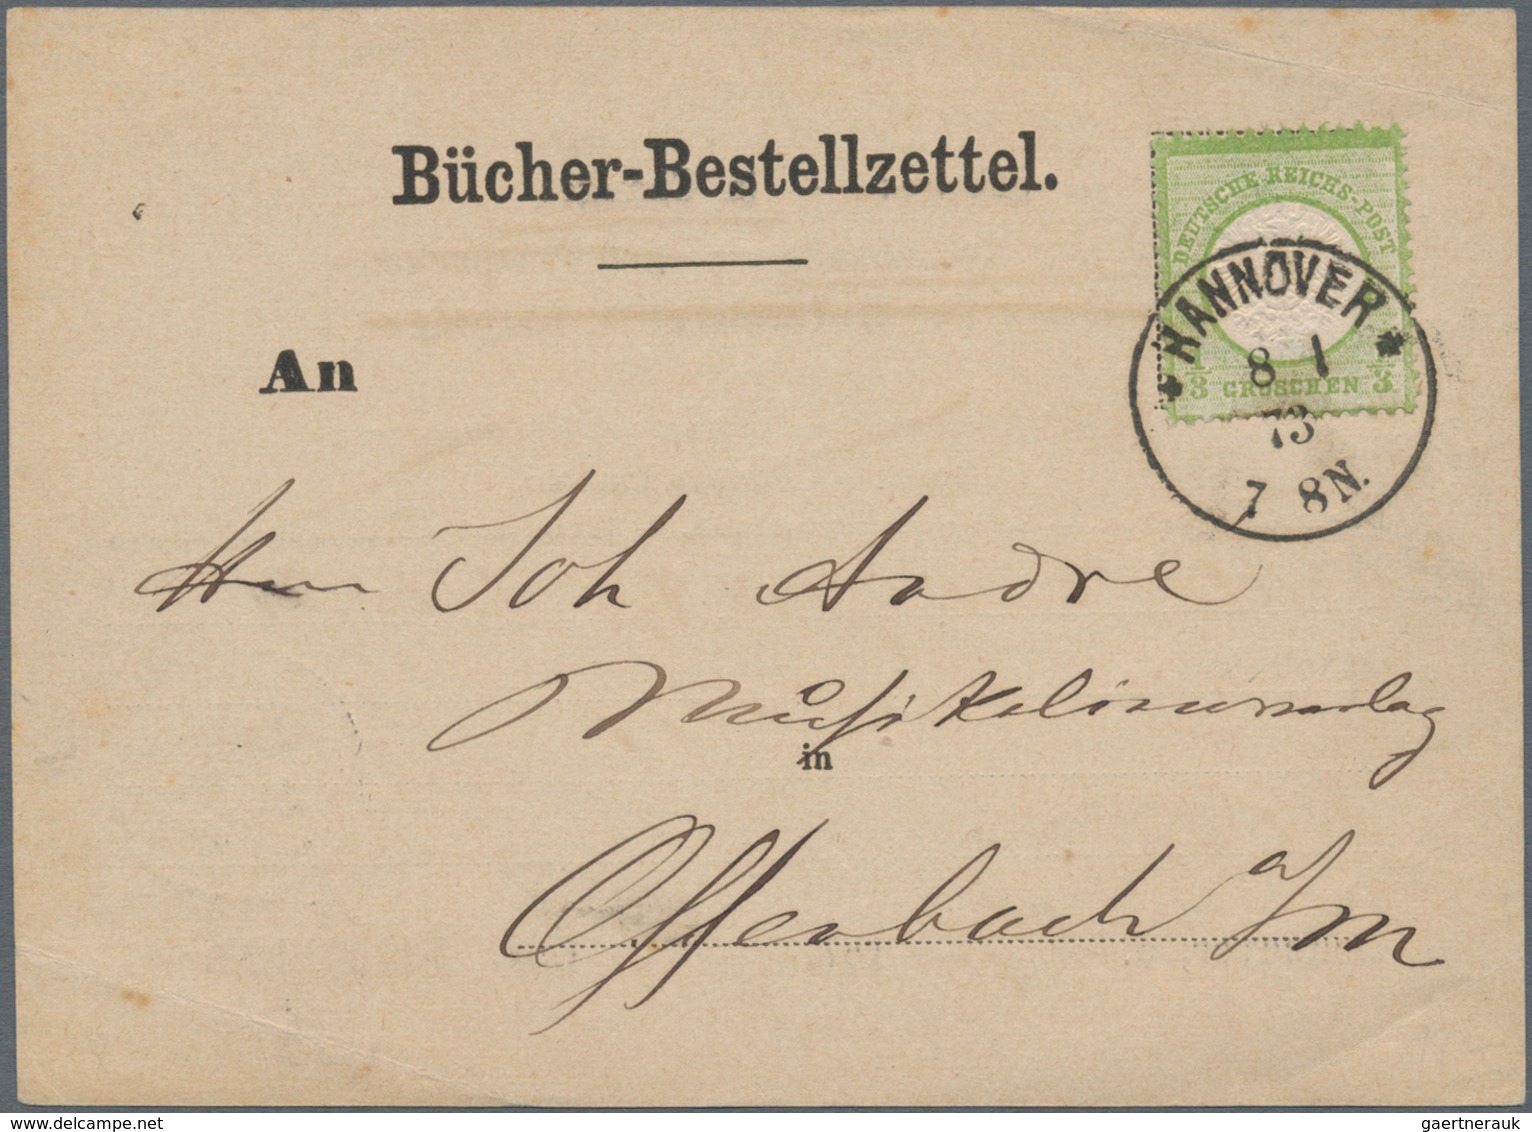 Bücher-Bestellzettel.
DEUTSCHE REICHS-POST
HANNOVER
8 1
1/3 GROSCHEN 1/3
73
7 8N.
An
Herrn Joh André
Musikalienverlag
in
Offenbach a/m
delcampe.net
gaertnerauk